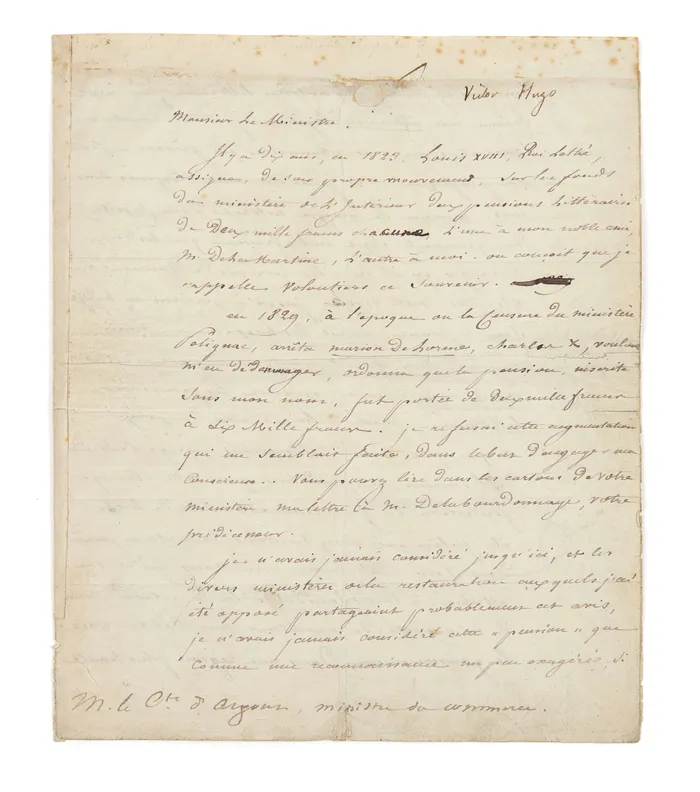 Victor Hugo
Monsieur Le Ministre.
Il y a dix ans, en 1823, Louis XVIII, Roi Lettré,
assigna, de son propre mouvement, sur les fonds
du ministère de L'Intérieur deux pensions Littéraires
de Deux mille francs chacune, L'une à mon noble ami,
M. De La Martine, L'autre à moi. on conçoit que je
rappelle volontiers ce souvenir.
en 1829, à l'époque ou la Censure du ministère
Polignac, arrêta marion De Lorme, charles X, voulant
m'en dédommager, ordonna que la pension, inscrite
sous mon nom, fut portée de Deux mille francs
à Six Mille francs. je refusai cette augmentation
qui me semblait faite, dans le but d'engager ma
conscience.. Vous pouvez lire dans les cartons de votre
ministère, ma lettre à M. De Labourdonnaye, votre
prédécesseur.
je n'avais jamais considéré jusqu'ici, et les
divers ministères de la restauration auxquels j'ai
été opposé partageaient probablement cet avis,
je n'avais jamais considéré cette « pension » que
comme une reconnaissance un peu exagérée, si
M. le Cte d'Argout, ministre du commerce.